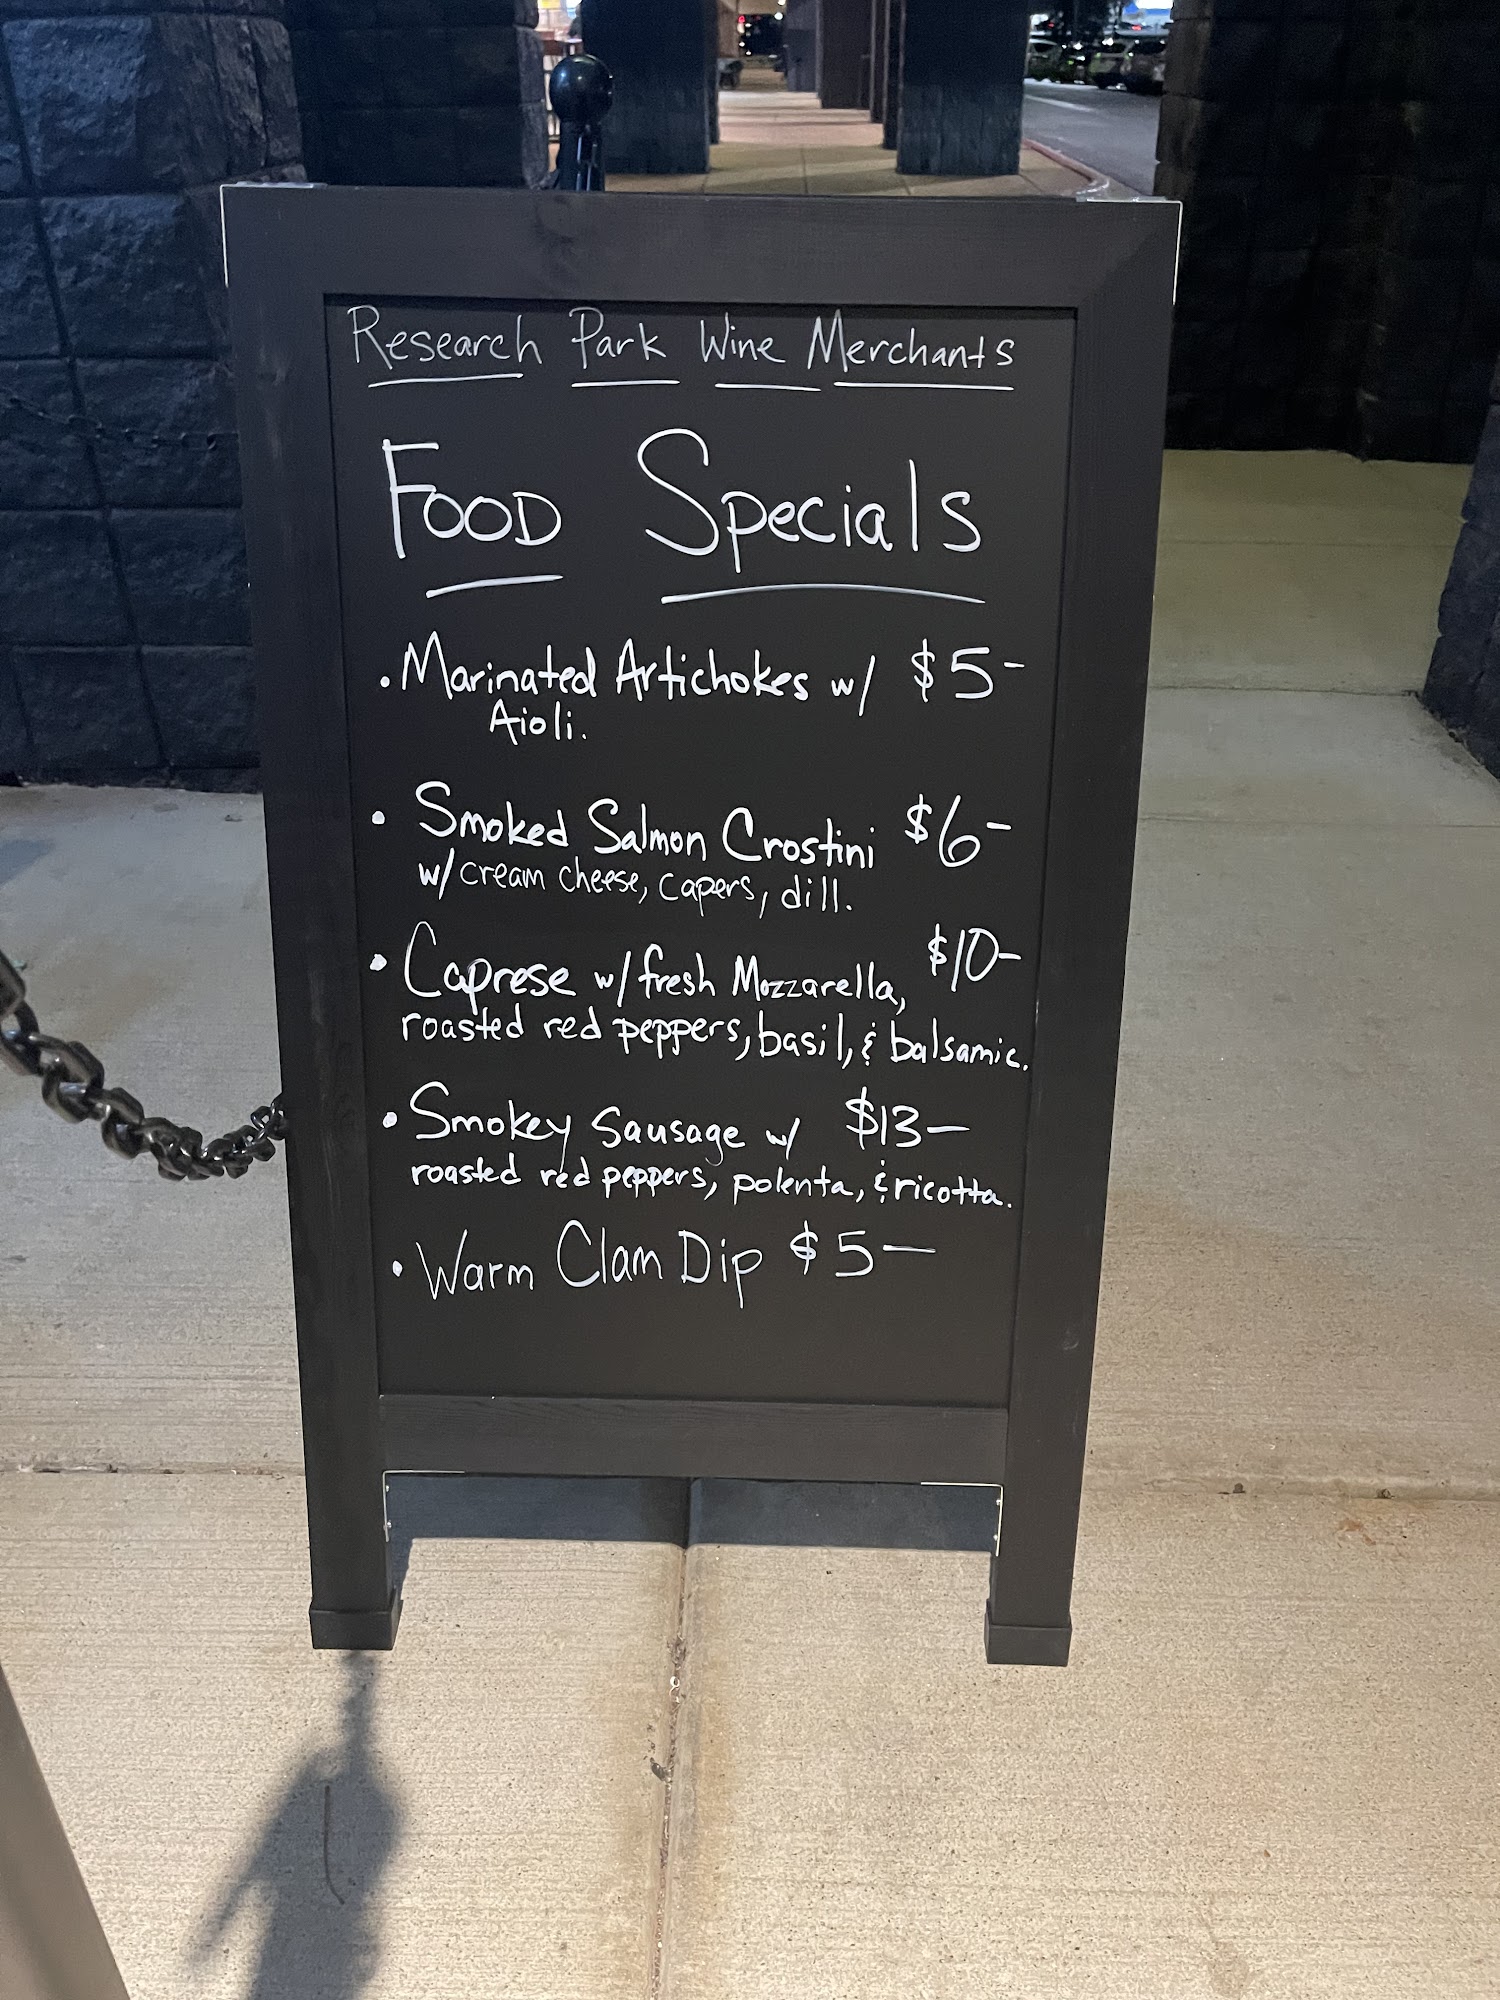 Research Park Wine Merchants
Food Specials
• Marinated Artichokes w/ $5-
Aioli.
• Smoked Salmon Crostini $6-
w/ cream cheese, capers, dill.
• Caprese w/ fresh Mozzarella, $10-
roasted red peppers, basil, & balsamic.
• Smokey Sausage w/ $13-
roasted red peppers, polenta, & ricotta.
• Warm Clam Dip $5-